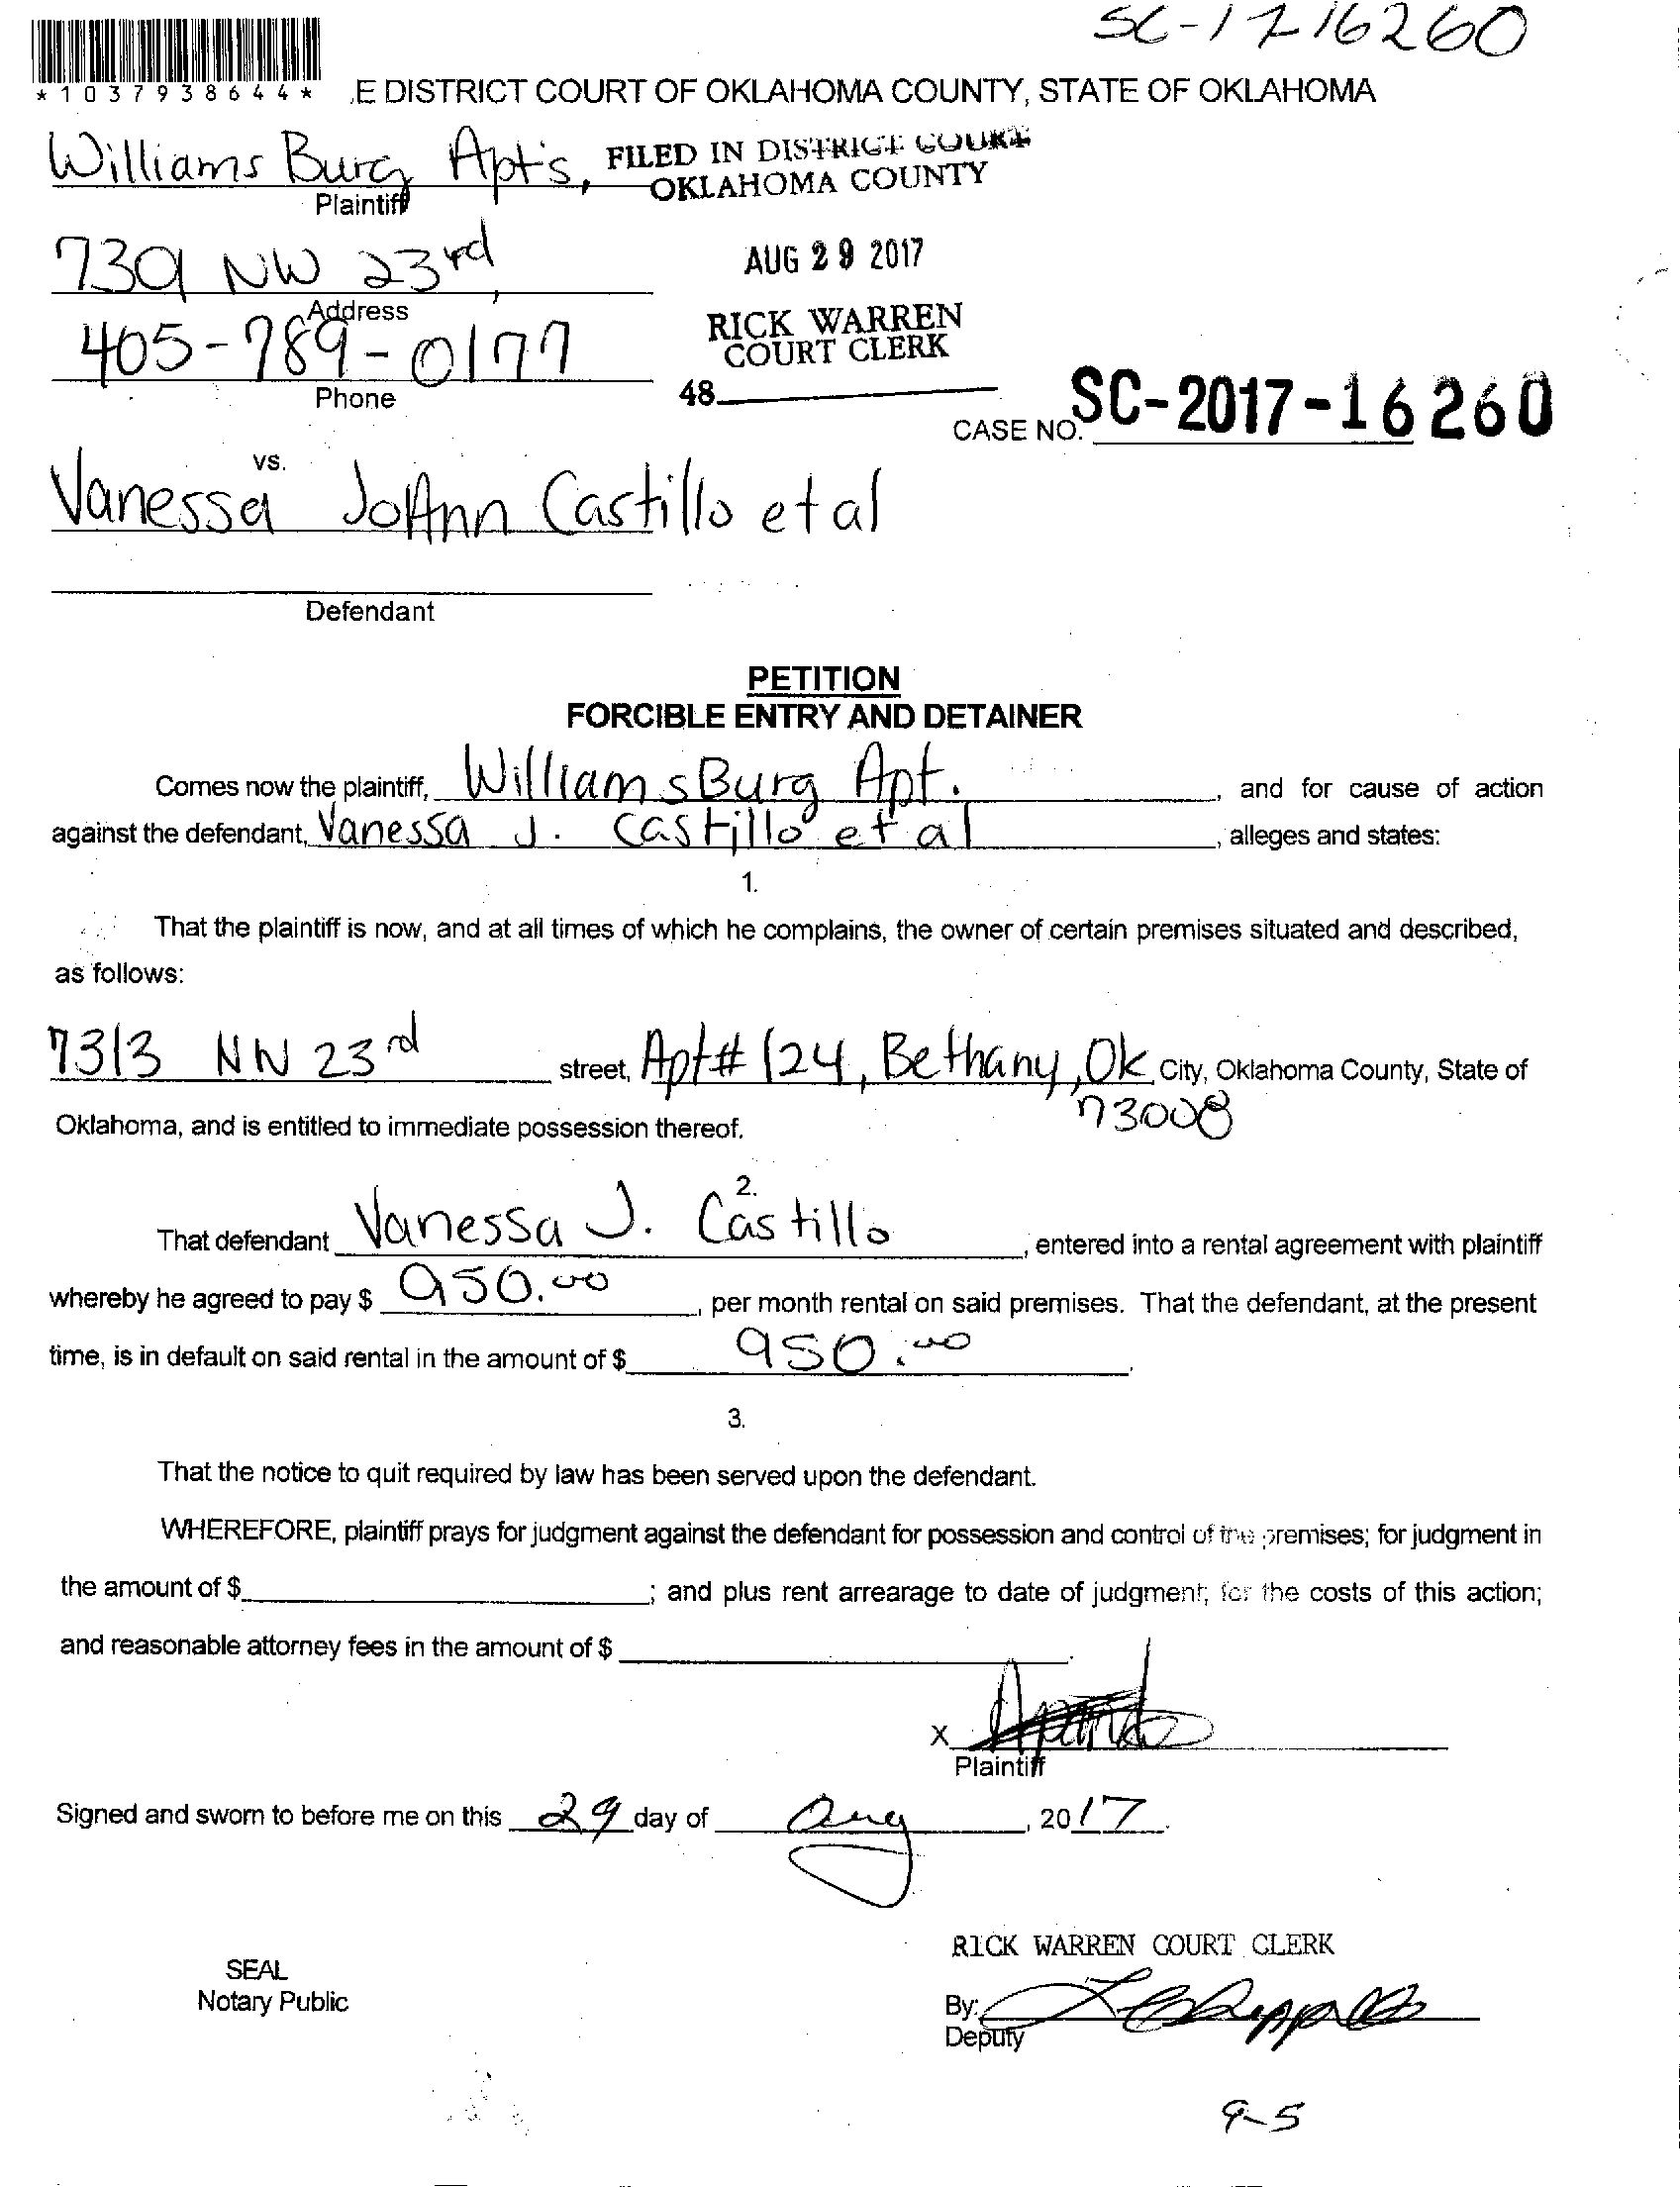 SC-1716260
*1037938644*
,E DISTRICT COURT OF OKLAHOMA COUNTY, STATE OF OKLAHOMA
Williams Burg Apt's,
FILED IN DISTRICT COURT
OKLAHOMA COUNTY
Plaintiff
7301 NW 23rd,
AUG 29 2017
Address
RICK WARREN
COURT CLERK
405-789-0177
Phone
48
CASE NO. SC-2017-16260
vs.
Vanessa JoAnn Castillo et al
Defendant
PETITION
FORCIBLE ENTRY AND DETAINER
Comes now the plaintiff, WilliamsBurg Apt. , and for cause of action
against the defendant, Vanessa J. Castillo et al , alleges and states:
1.
That the plaintiff is now, and at all times of which he complains, the owner of certain premises situated and described,
as follows:
7313 NW 23rd street, Apt# 124, Bethany, Ok City, Oklahoma County, State of
73008
Oklahoma, and is entitled to immediate possession thereof.
2.
That defendant Vanessa J. Castillo , entered into a rental agreement with plaintiff
whereby he agreed to pay $ 950.00 , per month rental on said premises. That the defendant, at the present
time, is in default on said rental in the amount of $ 950.00 .
3.
That the notice to quit required by law has been served upon the defendant.
WHEREFORE, plaintiff prays for judgment against the defendant for possession and control of the premises; for judgment in
the amount of $ ; and plus rent arrearage to date of judgment; for the costs of this action;
and reasonable attorney fees in the amount of $ .
X
Plaintiff
Signed and sworn to before me on this 29 day of Aug , 2017.
RICK WARREN COURT CLERK
SEAL
Notary Public
By:
Deputy
9-5